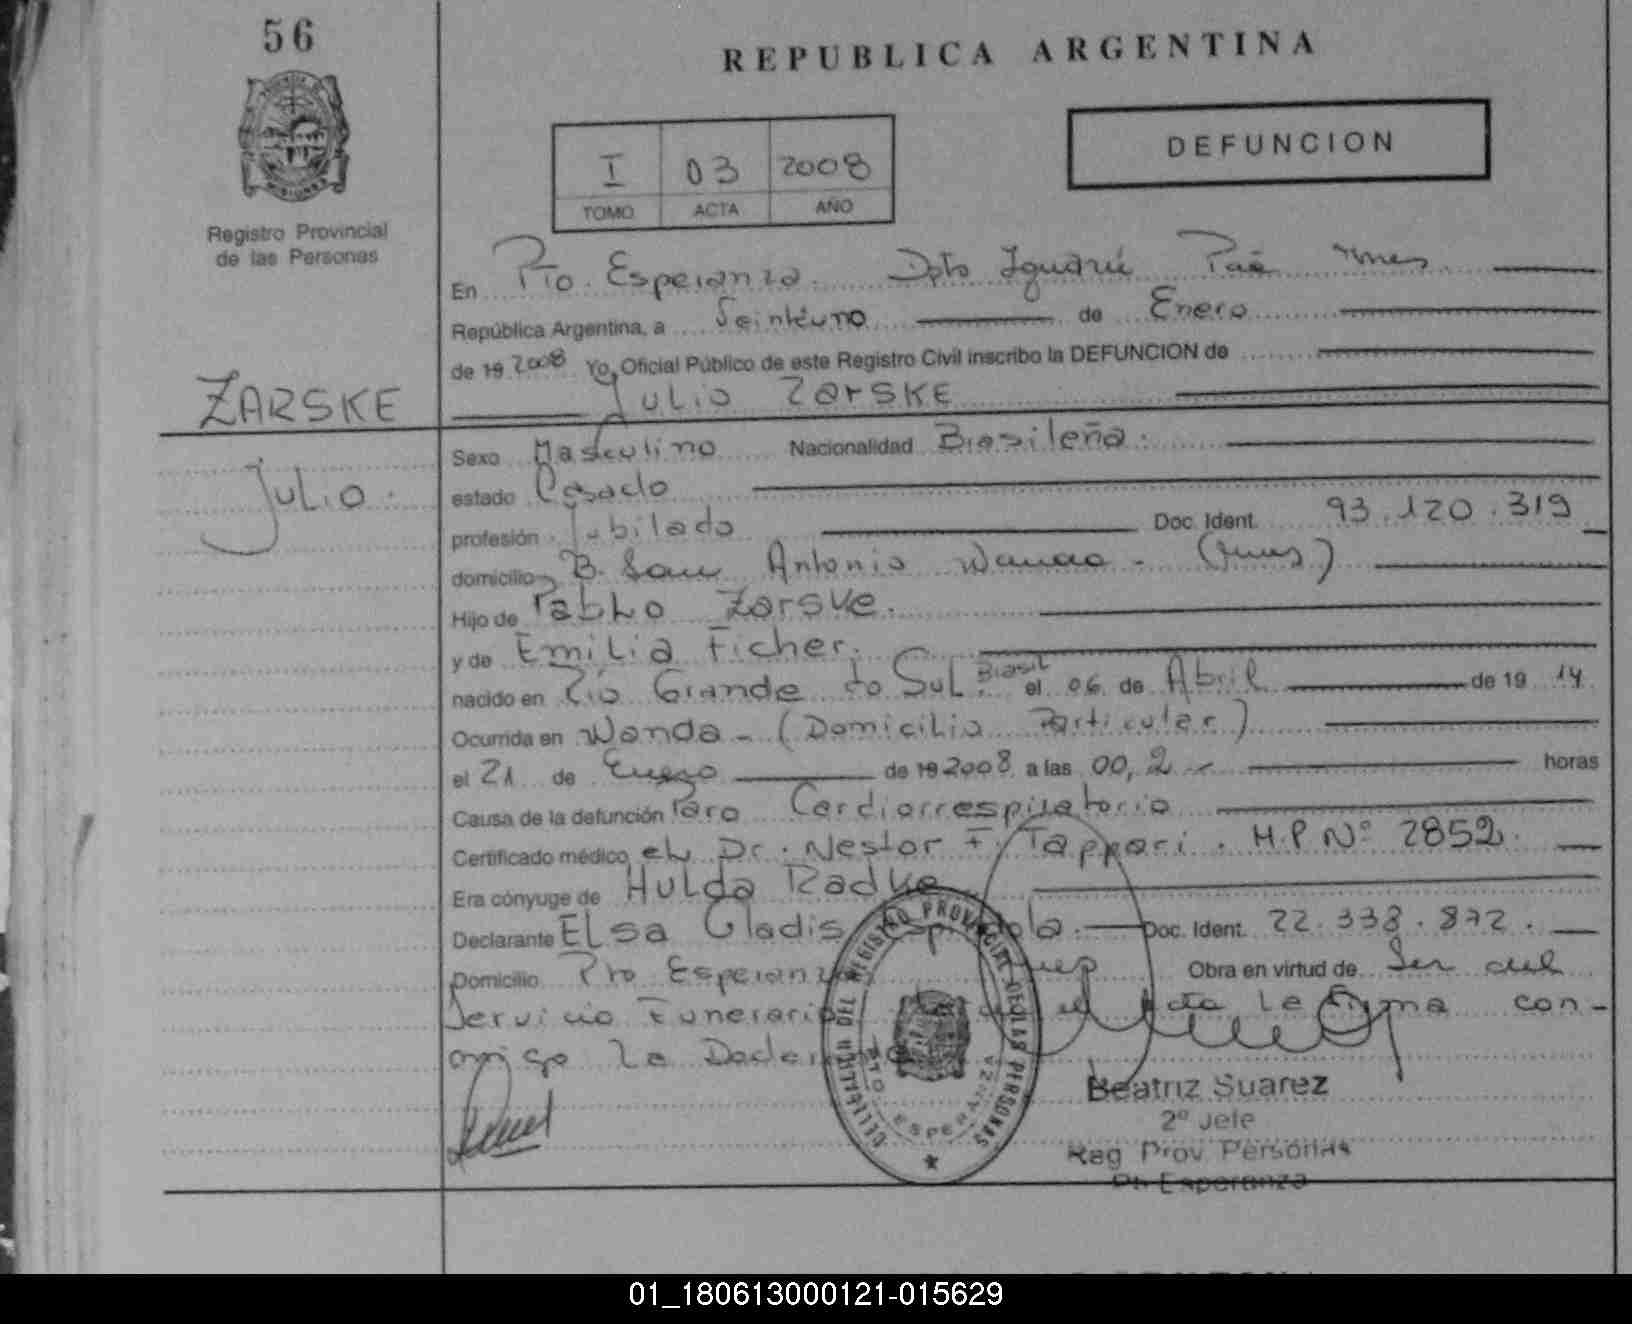 56
REPUBLICA ARGENTINA
DEFUNCION
I 03 2008
TOMO ACTA AÑO
Registro Provincial
de las Personas
En Pto. Esperanza. Dpto Iguazú Pcia Mnes
República Argentina, a Veintiuno de Enero
de 19 2008 Yo, Oficial Público de este Registro Civil inscribo la DEFUNCION de
Julio Zarske
ZARSKE
Julio.
Sexo Masculino Nacionalidad Brasileña.
estado Casado
profesión Jubilado Doc. Ident. 93.120.319
domicilio B. San Antonio Wanda - (Mnes)
Hijo de Pablo Zarske.
y de Emilia Ficher.
nacido en Rio Grande do Sul. Brasil el 06 de Abril de 19 14
Ocurrida en Wanda - (Domicilio Particular)
el 21 de Enero de 19 2008 a las 00,2 horas
Causa de la defunción Paro Cardiorrespiratorio
Certificado médico el Dr. Nestor F. Tappari. M.P Nº 2852.
Era cónyuge de Hulda Radke
Declarante Elsa Gladis Doc. Ident. 22.338.872.
Domicilio Pto Esperanza Mnes Obra en virtud de Ser del
Servicio Funerario acta La Firma con-
migo La Declarante
REGISTRO PROVINCIAL DE LAS PERSONAS
PTO ESPERANZA
Beatriz Suarez
2º Jefe
Reg Prov. Personas
Pto Esperanza
01_180613000121-015629